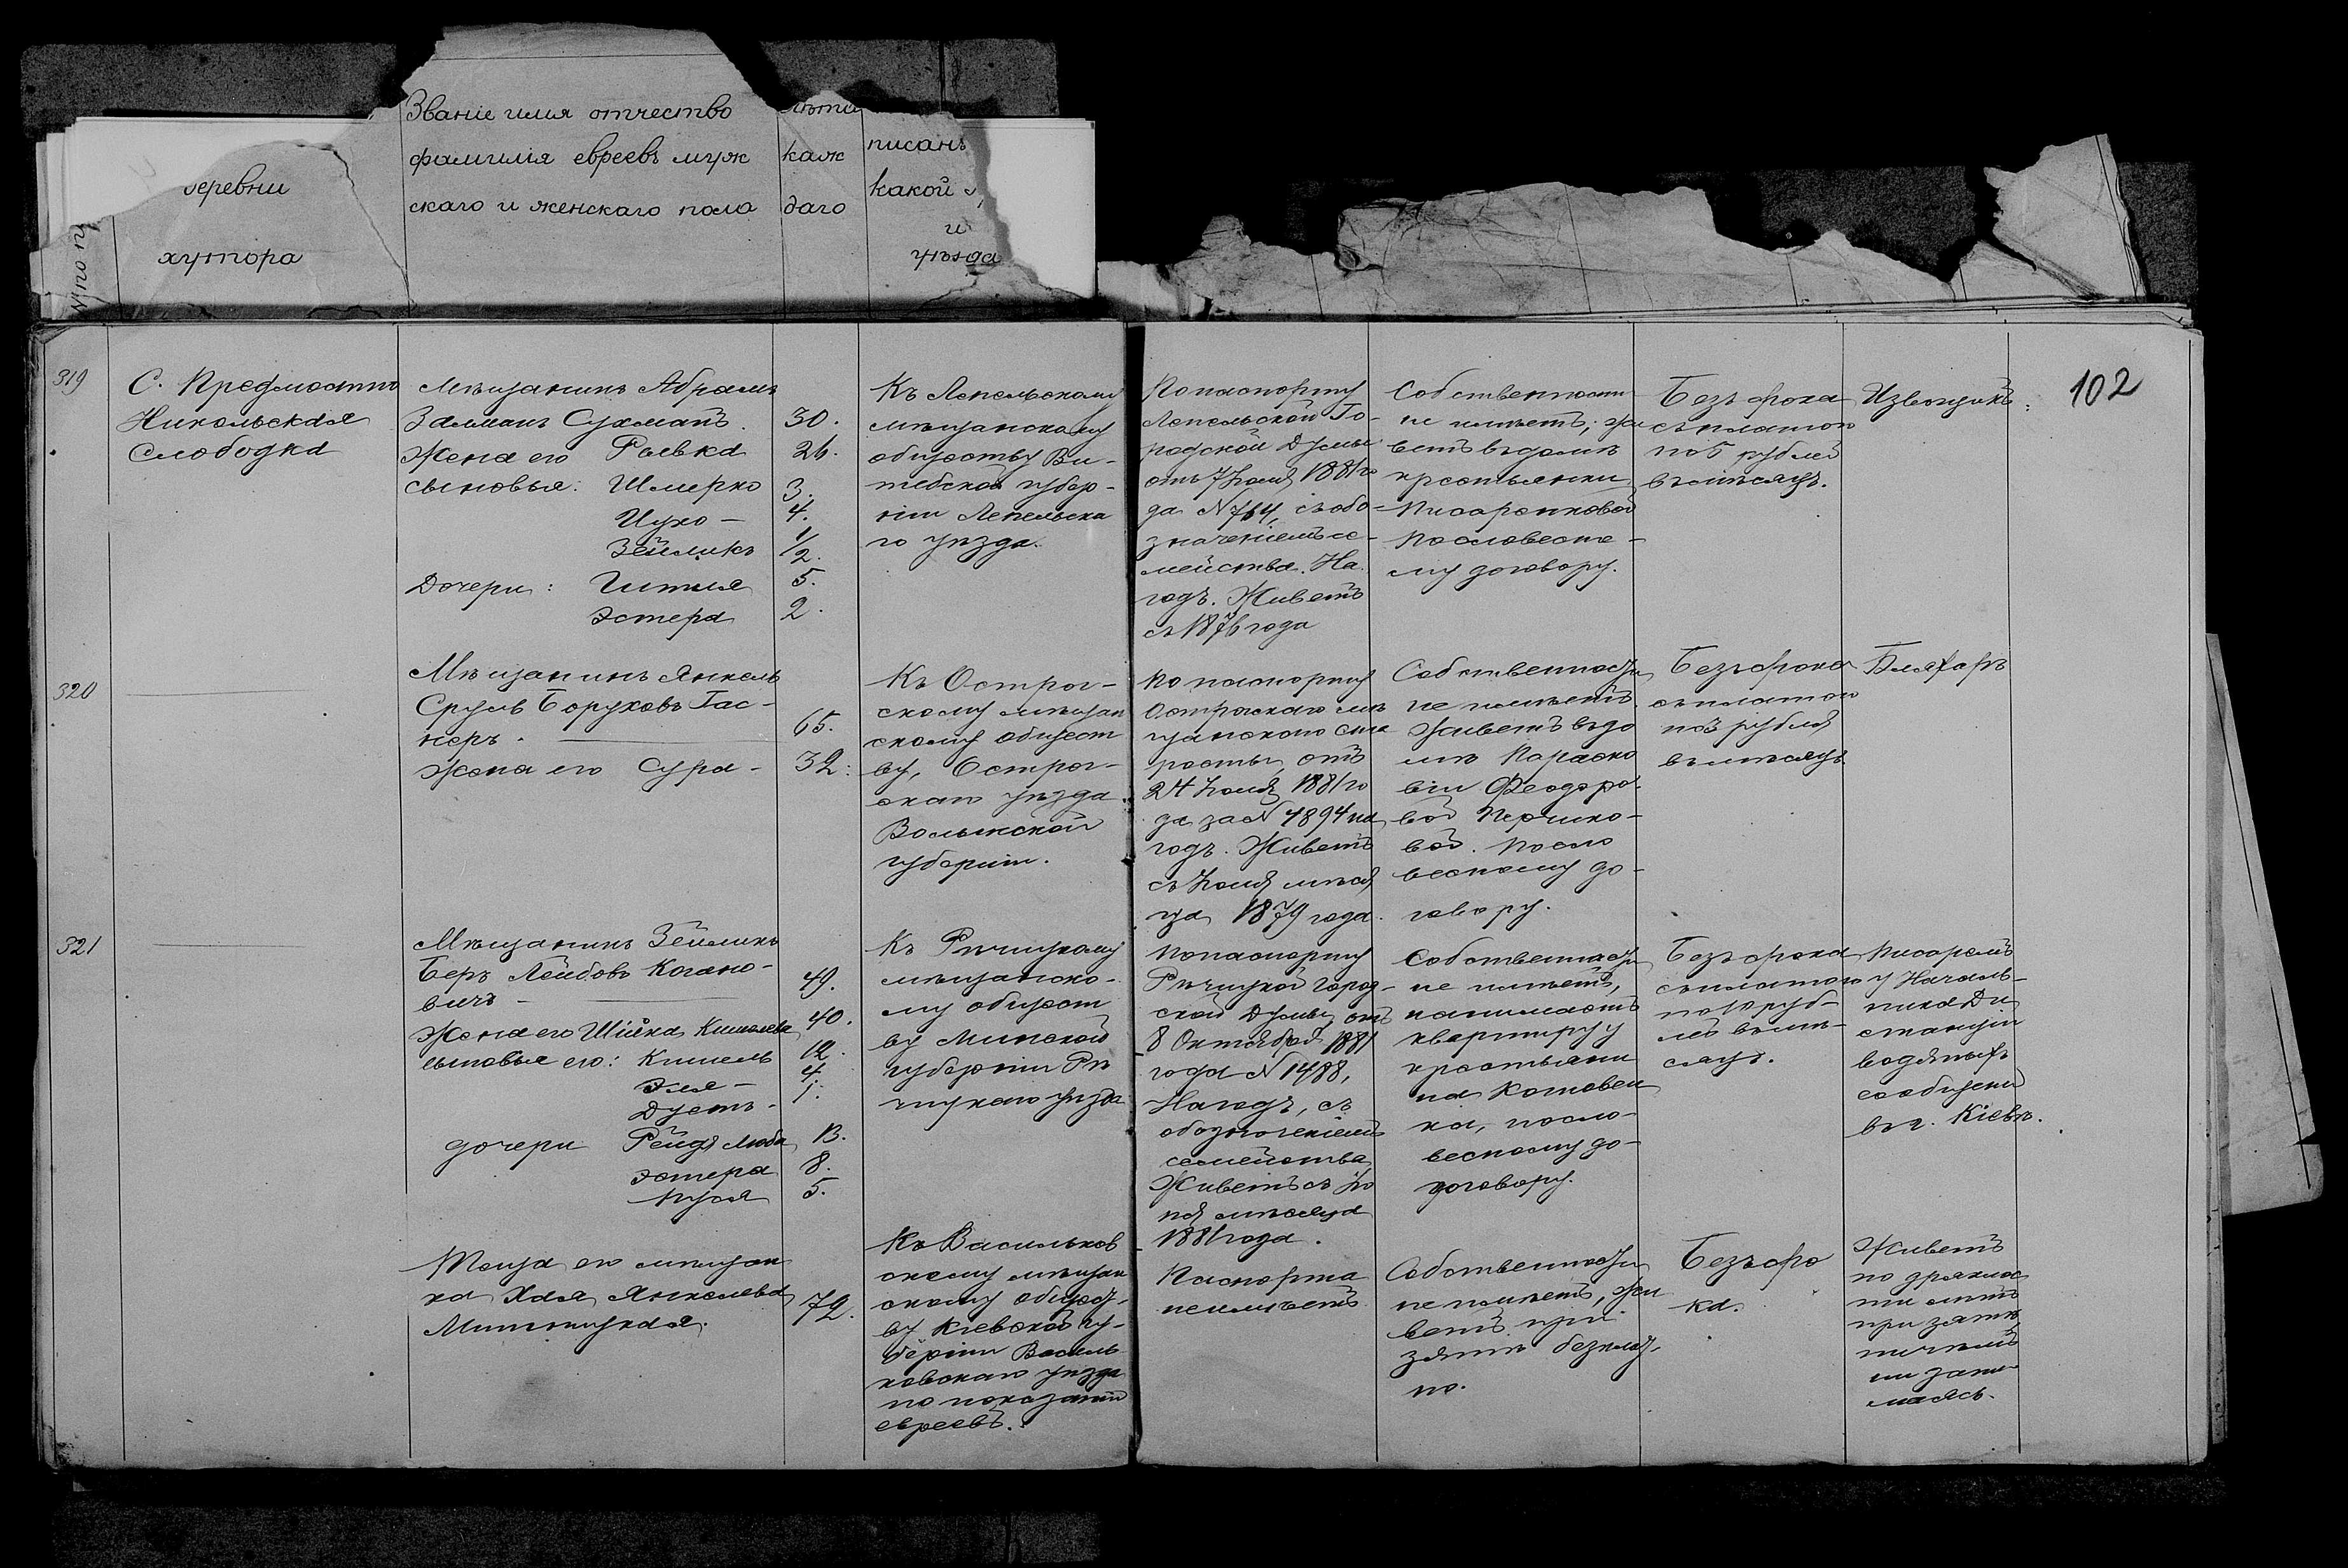 Званіе имя отчество
фамилія евреевъ муж
скаго и женскаго пола
лѣта
каж
даго
писанъ
какой
и
уѣзда
деревни
хутора
102
319
С. Предмостно
Никольская
Слободка
Мѣщанинъ Абрамъ
Залманъ Сухманъ.
Жена его Ривка
сыновья: Шмерко
Ицко —
Зейликъ
Дочери: Гитля
Эстера
30.
26.
3.
4.
1/2.
5.
2.
Къ Лепельскому
мѣщанскому
обществу Ви-
тебской губер-
ніи Лепельска
го уѣзда.
По паспорту
Лепельской Го-
родской Думы
отъ 7 Іюля 1881 го
да N 764, съ обо-
значеніемъ се-
мейства. На
годъ. Живетъ
съ 1876 года
Собственности
не имѣетъ; жи
ветъ въ домѣ
крестьянки
Писаренковой
по словесно-
му договору.
Безъ срока
съ платою
по 5 рублей
въ мѣсяцъ.
Извощикъ:
320
Мѣщанинъ Янкель
Сруль Боруховъ Гас-
неръ. —
Жена его Сура —
65.
32:
Къ Острог-
скому мѣщан
скому общест
ву, Острог-
скаго уѣзда.
Волынской
губерніи.
По паспорту
Острожскаго мѣ
щанскаго ста
росты, отъ
24 Іюля 1881 го
да за N 4894 на
годъ. Живетъ
съ Іюля мѣся
ца 1879 года.
Собственности
не имѣетъ
Живетъ въ до
мѣ Параско
віи Феодоро-
вой
вой. По сло
весному до-
говору.
Безъ срока
съ платою
по 3 рубля
въ мѣсяцъ
Бляхаръ
321
Мѣщанинъ Зейликъ
Беръ Лейбовъ Когано-
вичъ —
Жена его Шійка Кишелева
сыновья его: Кишель
Эля —
Дуетъ —
дочери Рейдя Люба
Эстера
Нуся
49.
40.
12.
4
1.
13.
8.
5.
Къ Рѣчицкому
мѣщанско-
му общест
ву Минской
губерніи Рѣ
чицкаго уѣзда
По паспорту
Рѣчицкой город-
ской Думы, отъ
8 Октября 1881
года N 1488,
На годъ, съ
обозначеніемъ
семейства
Живетъ съ Ію
ня мѣсяца
1881 года.
Собственности
не имѣетъ,
нанимаетъ
квартиру у
крестьяни
на Котовен
ка, по сло-
весному до-
договору.
Безъ срока
съ платою
по 10 руб-
лей въ мѣ-
сяцъ.
Писаремъ
у Началь-
ника Ди
станціи
водяныхъ
сообщеній
въ г. Кіевѣ.
Теща его мѣщан
ка Хая Янкелева
72.
Къ Васильков
скому мѣщан
скому общест-
ву Кіевской гу-
берніи Василь
ковскаго уѣзда
по показанію
евреевъ.
Паспорта
не имѣетъ
Собственности
не имѣетъ, жи
ветъ при
зятѣ безплат-
но.
Безъ сро
ка.
Живетъ
по дряхлос
ти лѣтъ
при зятѣ,
ничѣмъ
не зани
маясь.